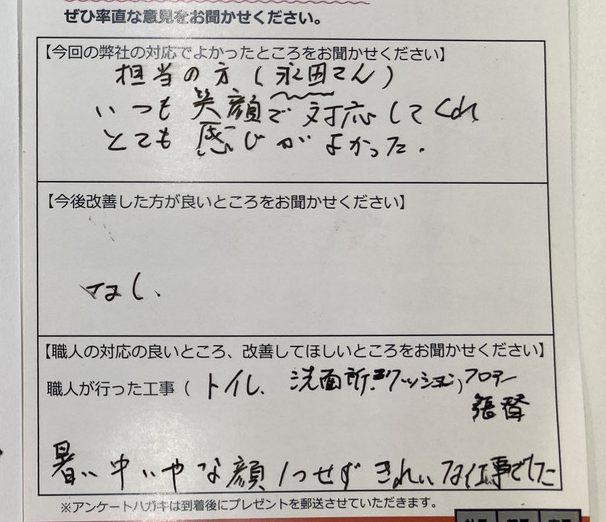 ぜひ率直な意見をお聞かせください。
【今回の弊社の対応でよかったところをお聞かせください】
担当の方(永田さん)
いつも笑顔で対応してくれ
とても感じがよかった。
【今後改善した方が良いところをお聞かせください】
なし、
【職人の対応の良いところ、改善してほしいところをお聞かせください】
職人が行った工事(トイレ、洗面所 クッションフロアー
張替
暑い中いやな顔1つせずきれいな仕事でした
※アンケートハガキは到着後にプレゼントを郵送させていただきます。